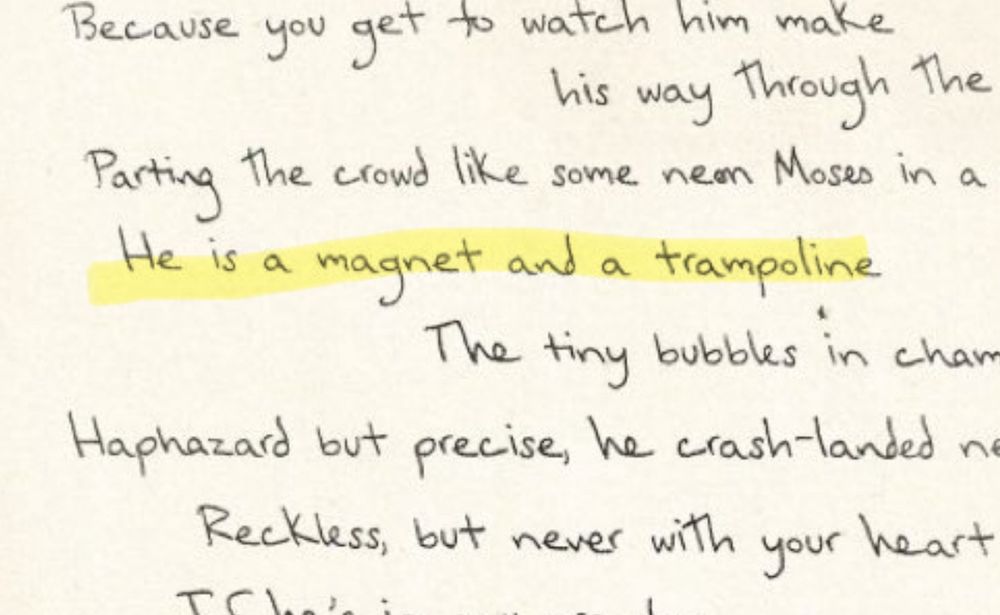 Because you get to watch him make
his way through the
Parting the crowd like some neon Moses in a
He is a magnet and a trampoline
The tiny bubbles in cham
Haphazard but precise, he crash-landed ne
Reckless, but never with your heart